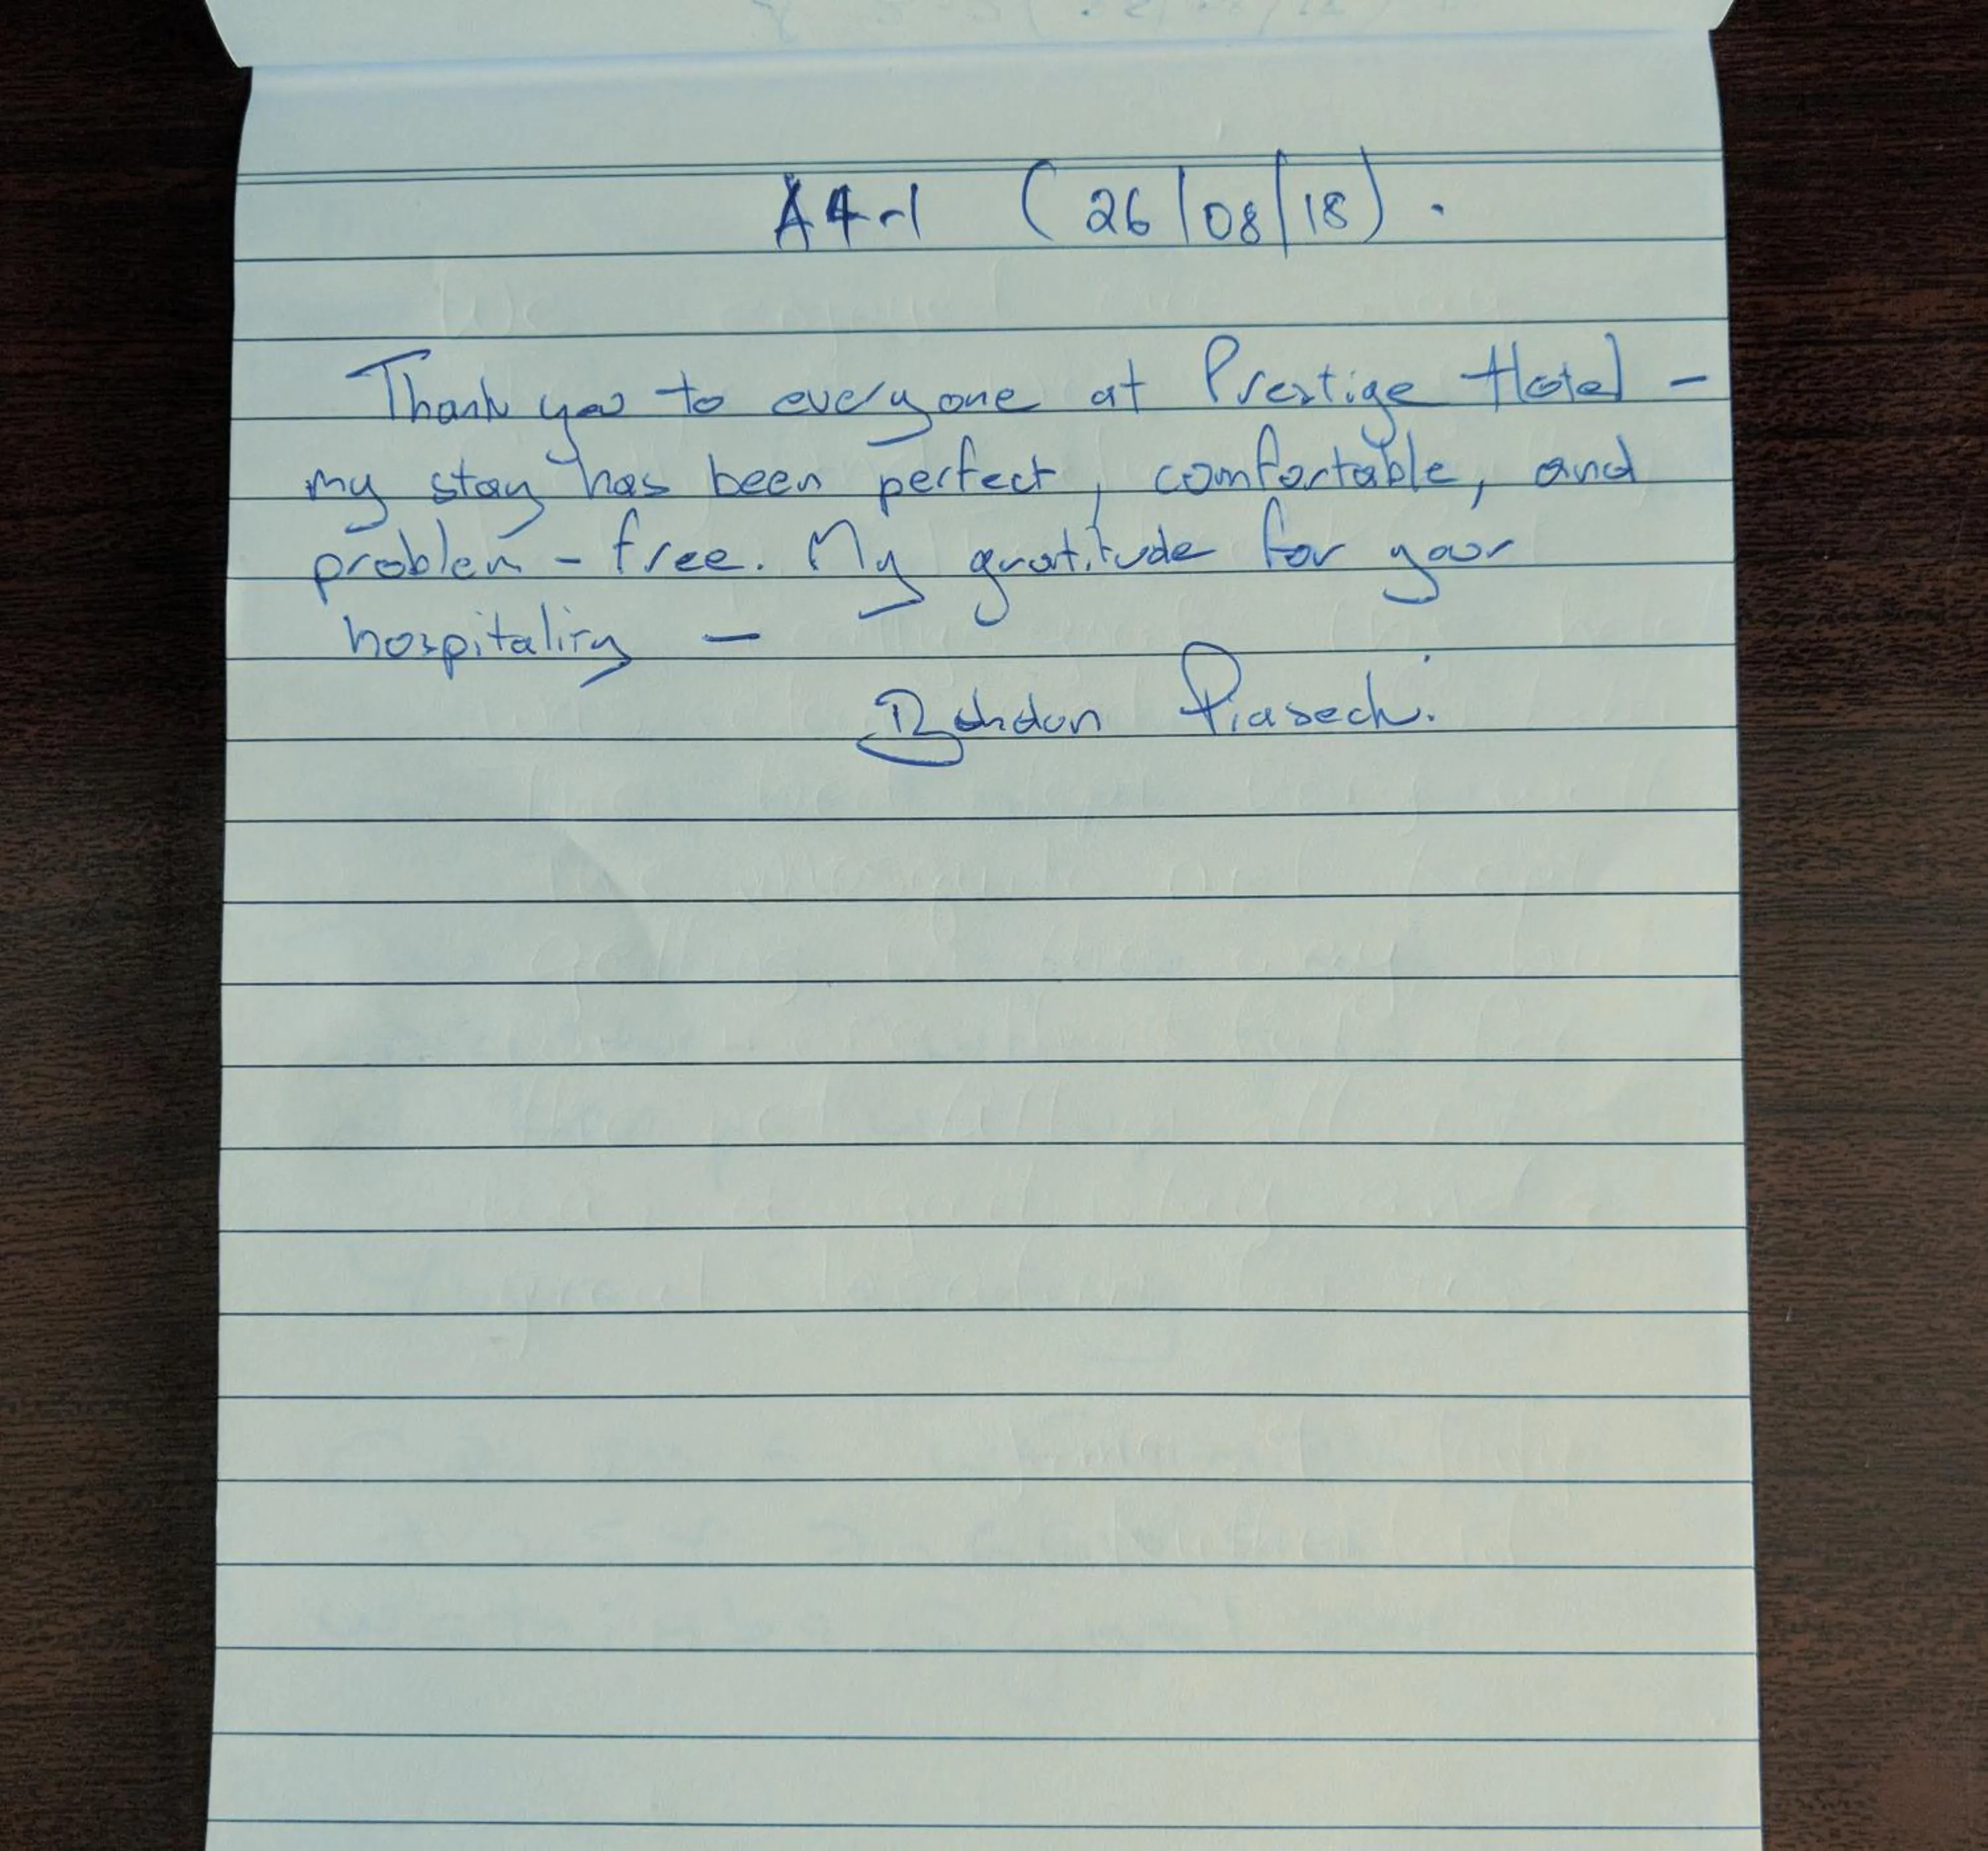 A4-1 (26/08/18).
Thank you to everyone at Prestige Hotel -
my stay has been perfect, comfortable, and
problem-free. My gratitude for your
hospitality -
Bohdan Piasecki.